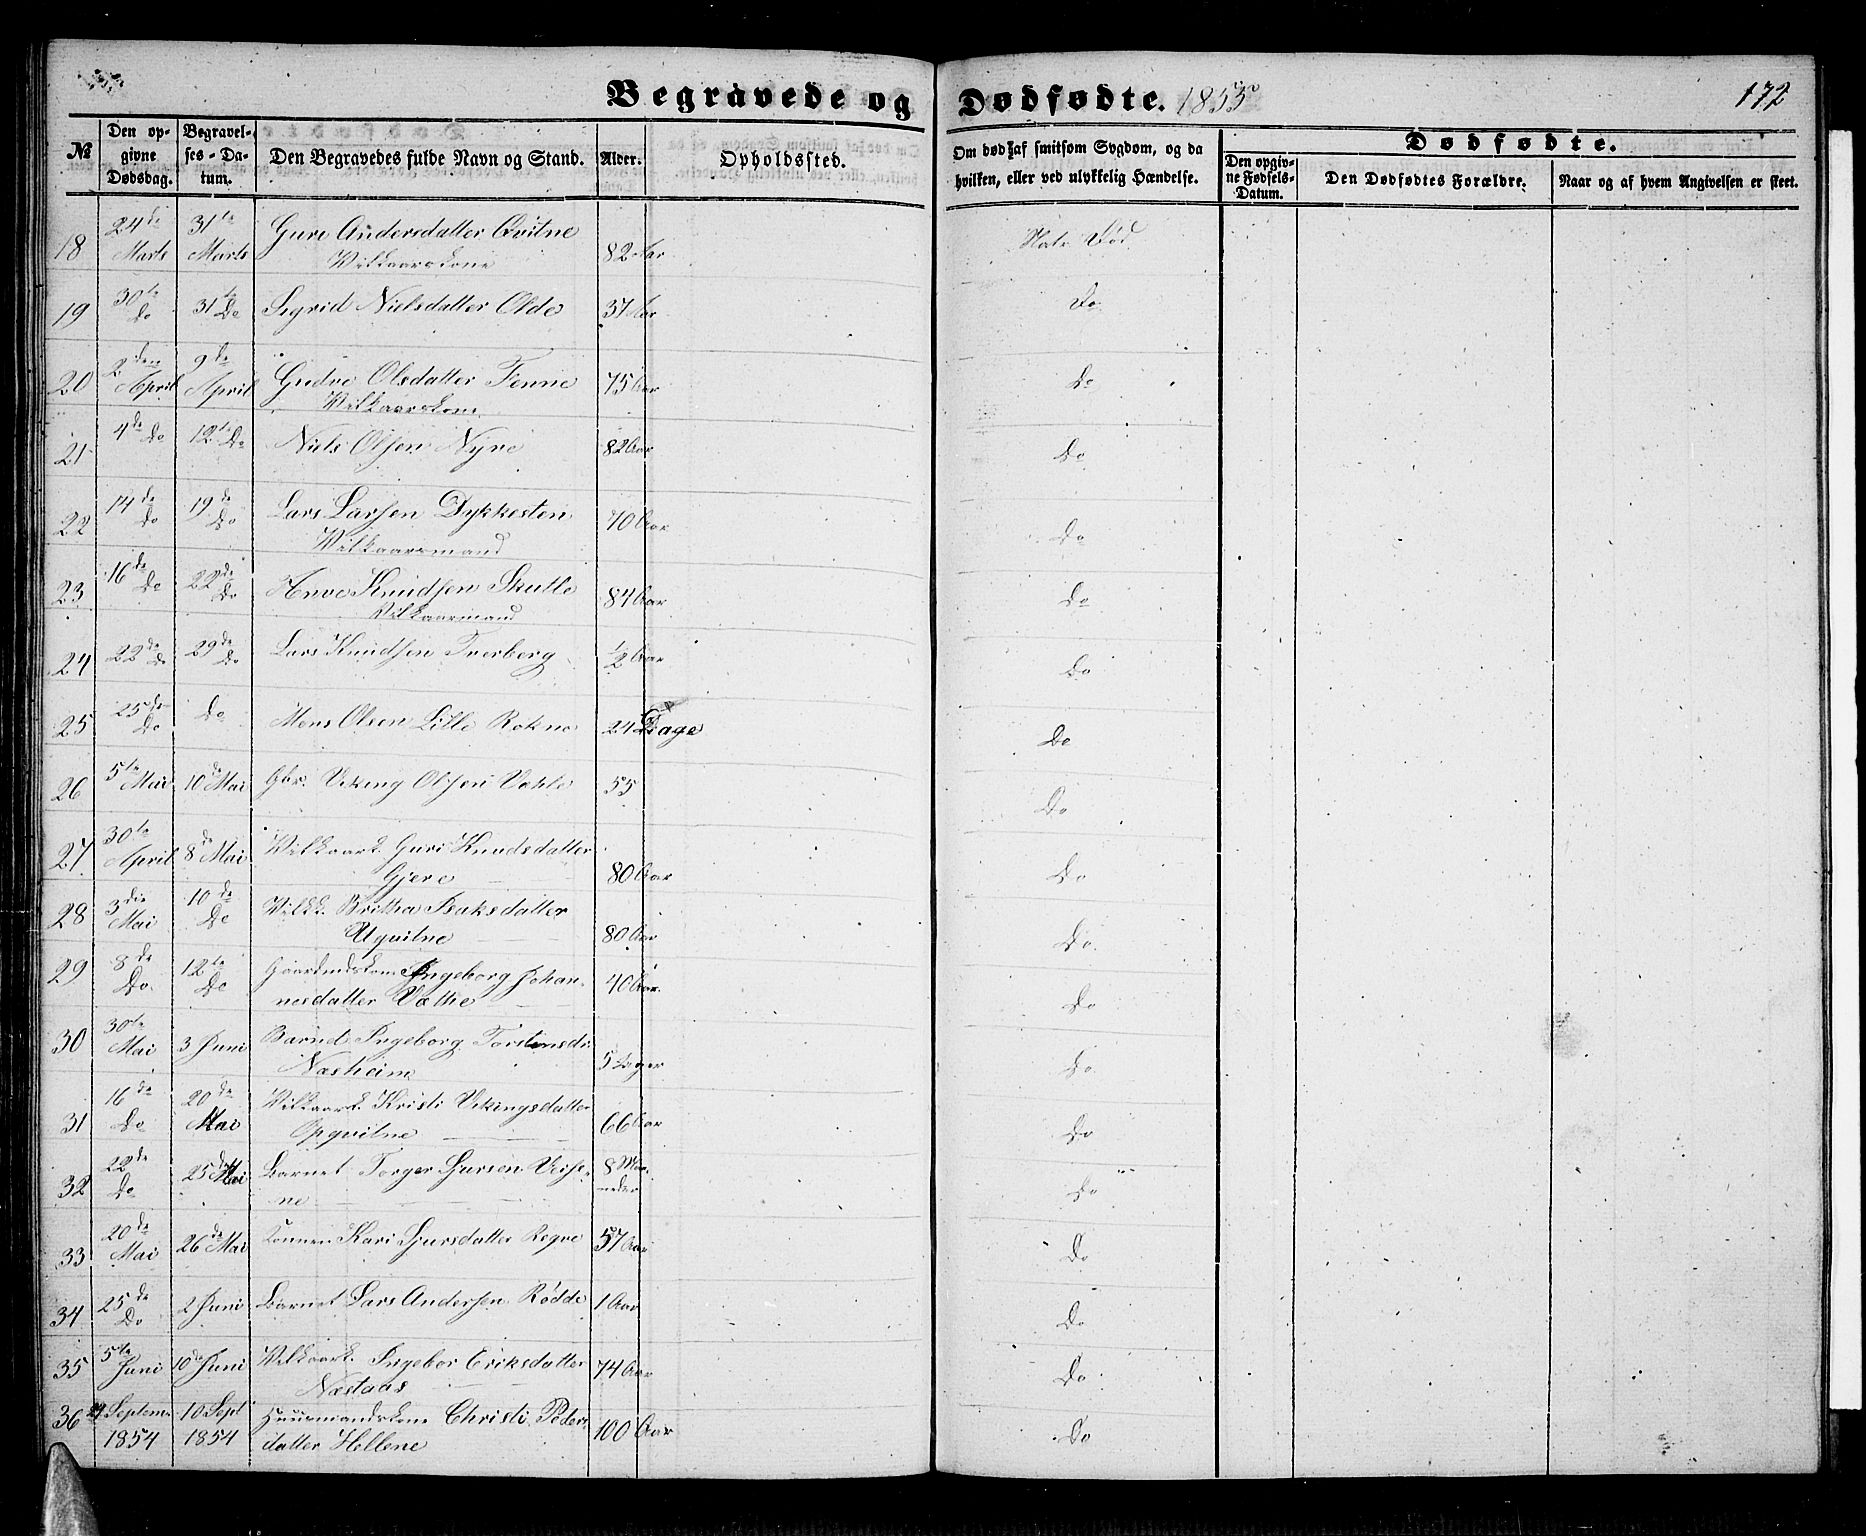 Begravede og Dødfødte. 1855 172
№ Den opgivne Dødsdag. Begravelses-Datum. Den Begravedes fulde Navn og Stand. Alder. Opholdssted. Om død af smitsom Sygdom, og da hvilken, eller ved ulykkelig Hændelse. Dødfødte. Den opgivne Fødsels-Datum. Den Dødfødtes Forældre. Naar og af hvem Angivelsen er skeet.
18 24de Marts 31te Marts Guri Andersdatter Qvitne 82 Aar Natr. Død
Vilkaarskone
19 30te Do 31te Do Sigrid Nielsdatter Olde 37 Aar Do
20 2den April 9de April Gudve Olsdatter Tenne 75 Aar Do
Vilkaarskone
21 4de Do 12te Do Niels Olsen Nyre 82 Aar Do
22 14de Do 19de Do Lars Larsen Dykkesten 70 Aar Do
Vilkaarsmand
23 16de Do 22de Do Anve Knudsen Skulle 84 Aar Do
Vilkaarmand
24 22de Do 29de Do Lars Knudsen Tverberg 1/2 Aar Do
25 25de Do Do Mons Olsen Lille Rokne 24 Dage Do
26 5te Mai 10de Mai Gbr. Viking Olsen Væhle 55 Do
27 30te April 8de Mai Vilkaark. Guri Knudsdatter
Gjere 80 Aar Do
28 3die Mai 10de Do Vilkk. Britha Isaksdatter
Ugvitne 80 Aar Do
29 8de Do 12te Do Gaardmdskone Ingeborg Johan-
nesdatter Væthe 40 Aar Do
30 30te Mai 3 Juni Barnet Ingeborg Torstensdr
Næsheim 5 Dager Do
31 16de Do 20de Mai Vilkaark. Kristi Vikingsdatter
Opqvitne 66 Aar Do
32 22de Do 25de Mai Barnet Torger Sjursen Veise-
ne 8 Maaneder Do
33 20de Mai 26de Mai Konnen Kari Sjursdatter Reqve 57 Aar Do
34 25de Do 2 Juni Barnet Lars Andersen Rødde 1 Aar Do
35 5te Juni 10de Juni Vilkaark. Ingebor Eriksdatter
Næstaas 74 Aar Do
36 Septem 1854 10 Sept 1854 Huusmandskone Christi Peders-
datter Hellene 100 Aar Do